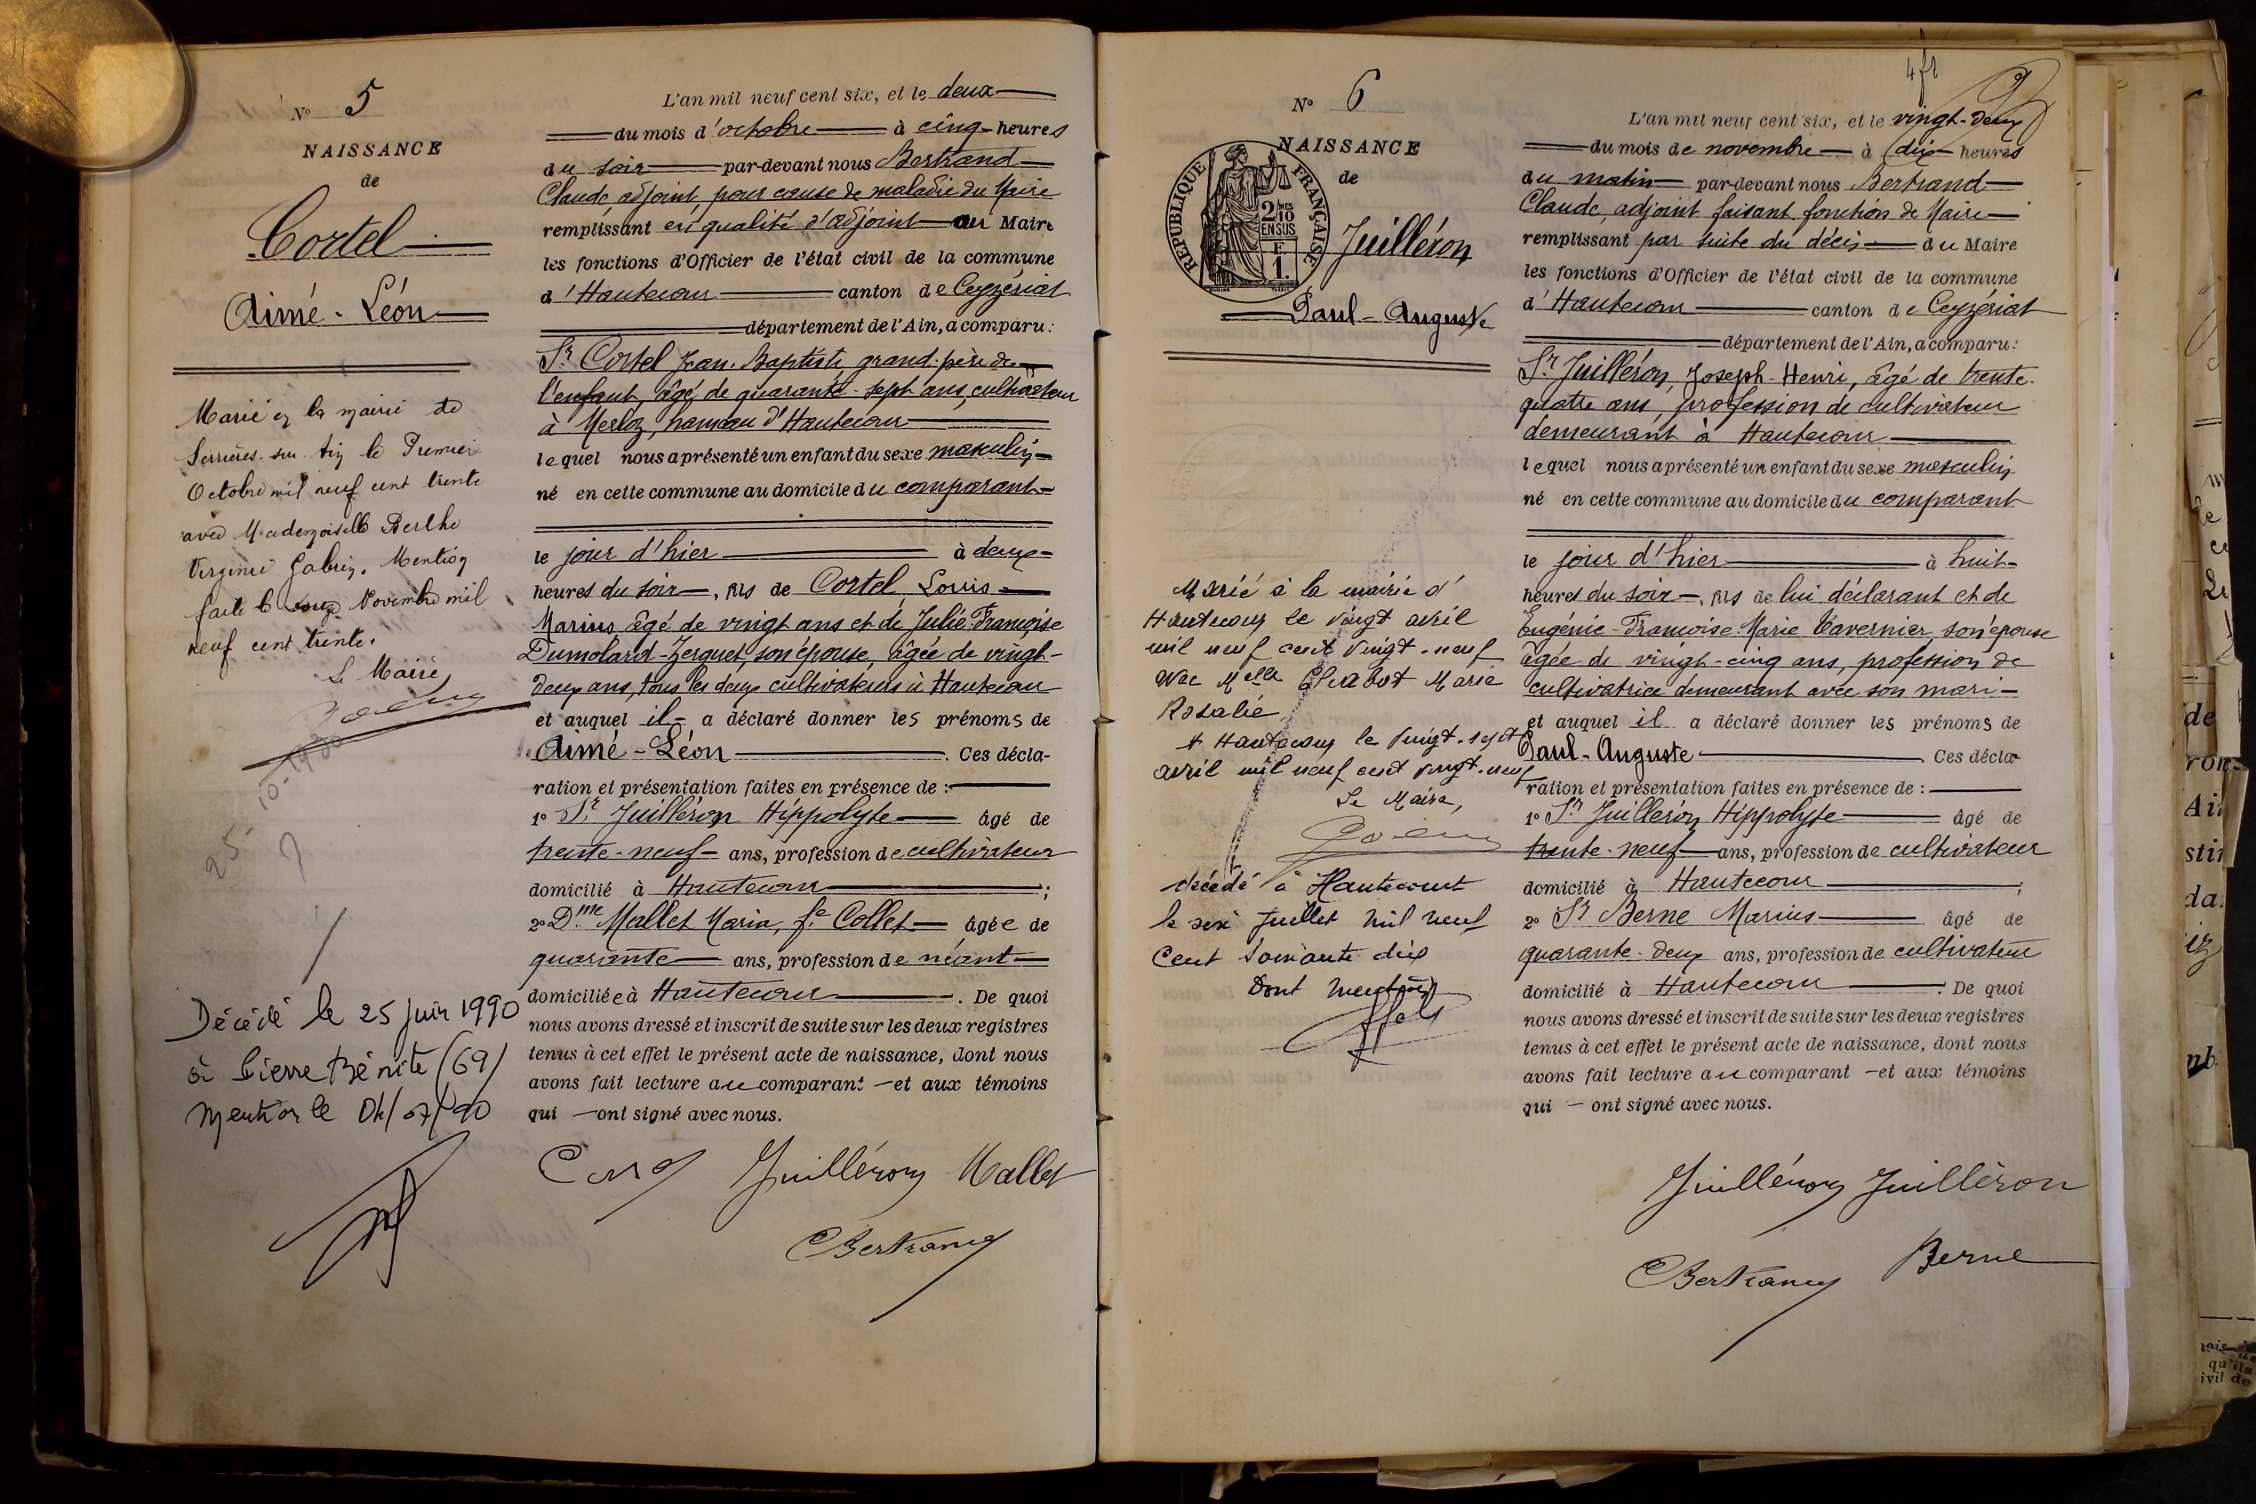 N° 5
NAISSANCE
de
Cortel
Aimé-Léon
Marié en la mairie de
Serrières-sur-Ain le Premier
Octobre mil neuf cent trente
avec Mademoiselle Berthe
Virginie Gabrin. Mention
faite le onze Novembre mil
neuf cent trente.
Le Maire
Décédé le 25 juin 1990
à Pierre Bénite (69)
Mention le 04/07/90
L'an mil neuf cent six, et le deux
du mois d'octobre à cinq heures
du soir par-devant nous Bertrand
Claude adjoint, pour cause de maladie du Maire
remplissant en qualité d'adjoint au Maire
les fonctions d'Officier de l'état civil de la commune
d'Hautecour canton de Ceyzériat
département de l'Ain, a comparu:
Sr Cortel Jean-Baptiste, grand-père de
l'enfant, âgé de quarante-sept ans, cultivateur
à Merloz, hameau d'Hautecour
lequel nous a présenté un enfant du sexe masculin
né en cette commune au domicile du comparant
le jour d'hier à deux
heures du soir, fils de Cortel Louis
Marius âgé de vingt ans et de Julie Françoise
Dumolard-Jerquet, son épouse, âgée de vingt-
deux ans, tous les deux cultivateurs à Hautecour
et auquel il a déclaré donner les prénoms de
Aimé-Léon. Ces décla-
ration et présentation faites en présence de :
1° Sr. Juilléron Hippolyte âgé de
trente-neuf ans, profession de cultivateur
domicilié à Hautecour ;
2° Dme Mallet Maria, fe Collet âgée de
quarante ans, profession de néant
domiciliée à Hautecour. De quoi
nous avons dressé et inscrit de suite sur les deux registres
tenus à cet effet le présent acte de naissance, dont nous
avons fait lecture au comparant et aux témoins
qui ont signé avec nous.
Juilléron Mallet
CBertrand
N° 6
NAISSANCE
de
RÉPUBLIQUE FRANÇAISE
2/10 MES
EN SUS
F
1.
Juilléron
Paul-Auguste
Marié à la mairie d'
Hautecour le vingt avril
mil neuf cent vingt-neuf
avec Melle Marie
Rosalie
A Hautecour le vingt-sept
avril mil neuf cent vingt-neuf
Le Maire,
décédé à Hautecourt
le six Juillet mil neuf
Cent soixante dix
Dont mention
4f1
L'an mil neuf cent six, et le vingt-deux
du mois de novembre à dix heures
du matin par-devant nous Bertrand
Claude, adjoint faisant fonction de Maire
remplissant par suite du décès du Maire
les fonctions d'Officier de l'état civil de la commune
d'Hautecour canton de Ceyzériat
département de l'Ain, a comparu:
Sr Juilléron, Joseph-Henri, âgé de trente-
quatre ans, profession de cultivateur
demeurant à Hautecour
lequel nous a présenté un enfant du sexe masculin
né en cette commune au domicile du comparant
le jour d'hier à huit
heures du soir, fils de lui déclarant et de
Eugénie-Françoise-Marie Tavernier, son épouse
âgée de vingt-cinq ans, profession de
cultivatrice demeurant avec son mari
et auquel il a déclaré donner les prénoms de
Paul-Auguste. Ces décla-
ration et présentation faites en présence de :
1° Sr Juilléron Hippolyte âgé de
trente-neuf ans, profession de cultivateur
domicilié à Hautecour ;
2° Sr Berne Marius âgé de
quarante-deux ans, profession de cultivateur
domicilié à Hautecour. De quoi
nous avons dressé et inscrit de suite sur les deux registres
tenus à cet effet le présent acte de naissance, dont nous
avons fait lecture au comparant et aux témoins
qui ont signé avec nous.
Juilléron Juilléron
CBertrand Berne